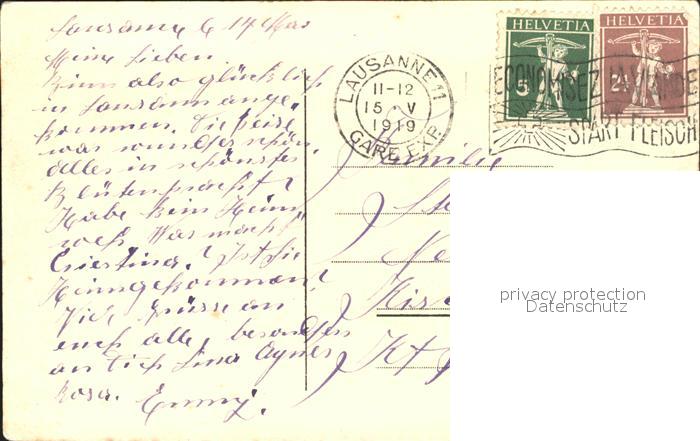 Lausanne 14 Mai
Meine Lieben.
Bin also glücklich
in Lausann ange-
kommen. Die Reise
war wunderschön,
alles in schönster
Blütenpracht.
Habe kein Heim-
weh. Was macht
Ist sie
Heimgekommen?
Viele Grüsse an
euch alle, besonders
an dich Lina Agnes
Rosa. Emmy.
HELVETIA
5
HELVETIA
LAUSANNE 11
11-12
15 V
1919
GARE EXP.
ECONOMISEZ LA VIANDE
SPART FLEISCH
Familie
privacy protection
Datenschutz